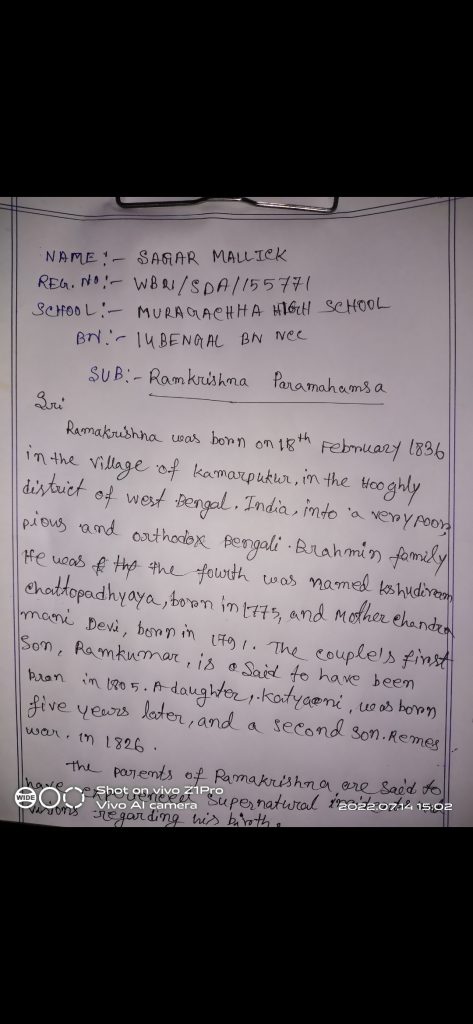 NAME:- SAGAR MALLICK
REG. NO:- WBN/SDA/155771
SCHOOL:- MURAGACHHA HIGH SCHOOL
BN:- 14 BENGAL BN NCC
SUB:- Ramkrishna Paramahamsa
Sri
Ramakrishna was born on 18th February 1836
in the village of Kamarpukur, in the Hooghly
district of west Bengal. India, into a very poor,
pious and orthodox Bengali Brahmin family
He was the fourth was named kshudiram
Chattopadhyaya, born in 1775, and Mother Chandra
mani Devi, born in 1791. The couple's first
Son, Ramkumar, is a Said to have been
bran in 1805. A daughter, Katyaeni, was born
five years later, and a second son. Remes
war. in 1826.
The parents of Ramakrishna are said to
have experienced supernatural
visions regarding his birth.
WIDE
Shot on vivo Z1Pro
Vivo AI camera
2022.07.14 15:02